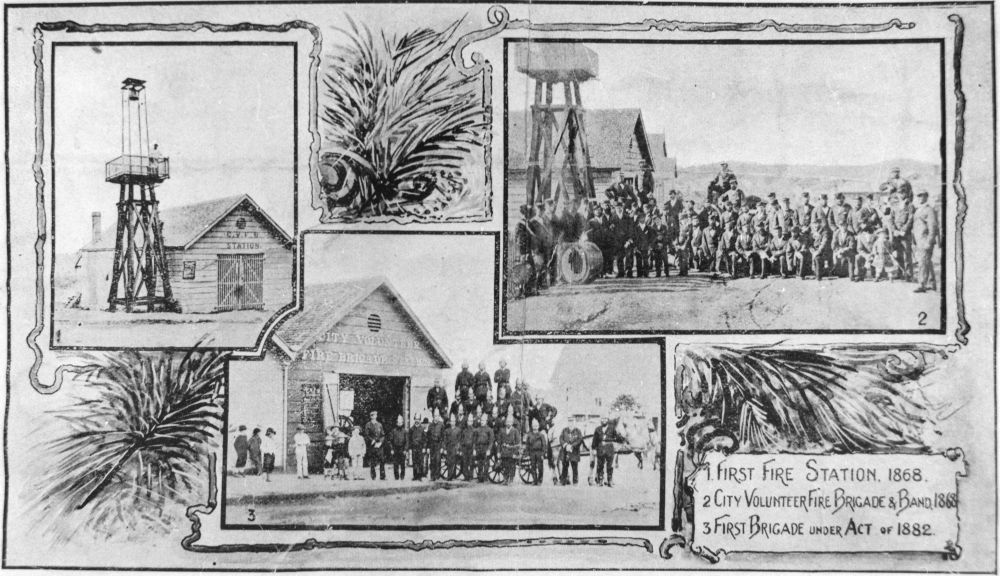 C.V.F.B
STATION
1
2
CITY VOLUNTEER
FIRE BRIGADE
3
1. FIRST FIRE STATION. 1868.
2 CITY VOLUNTEER FIRE BRIGADE & BAND, 1868
3 FIRST BRIGADE UNDER ACT OF 1882.